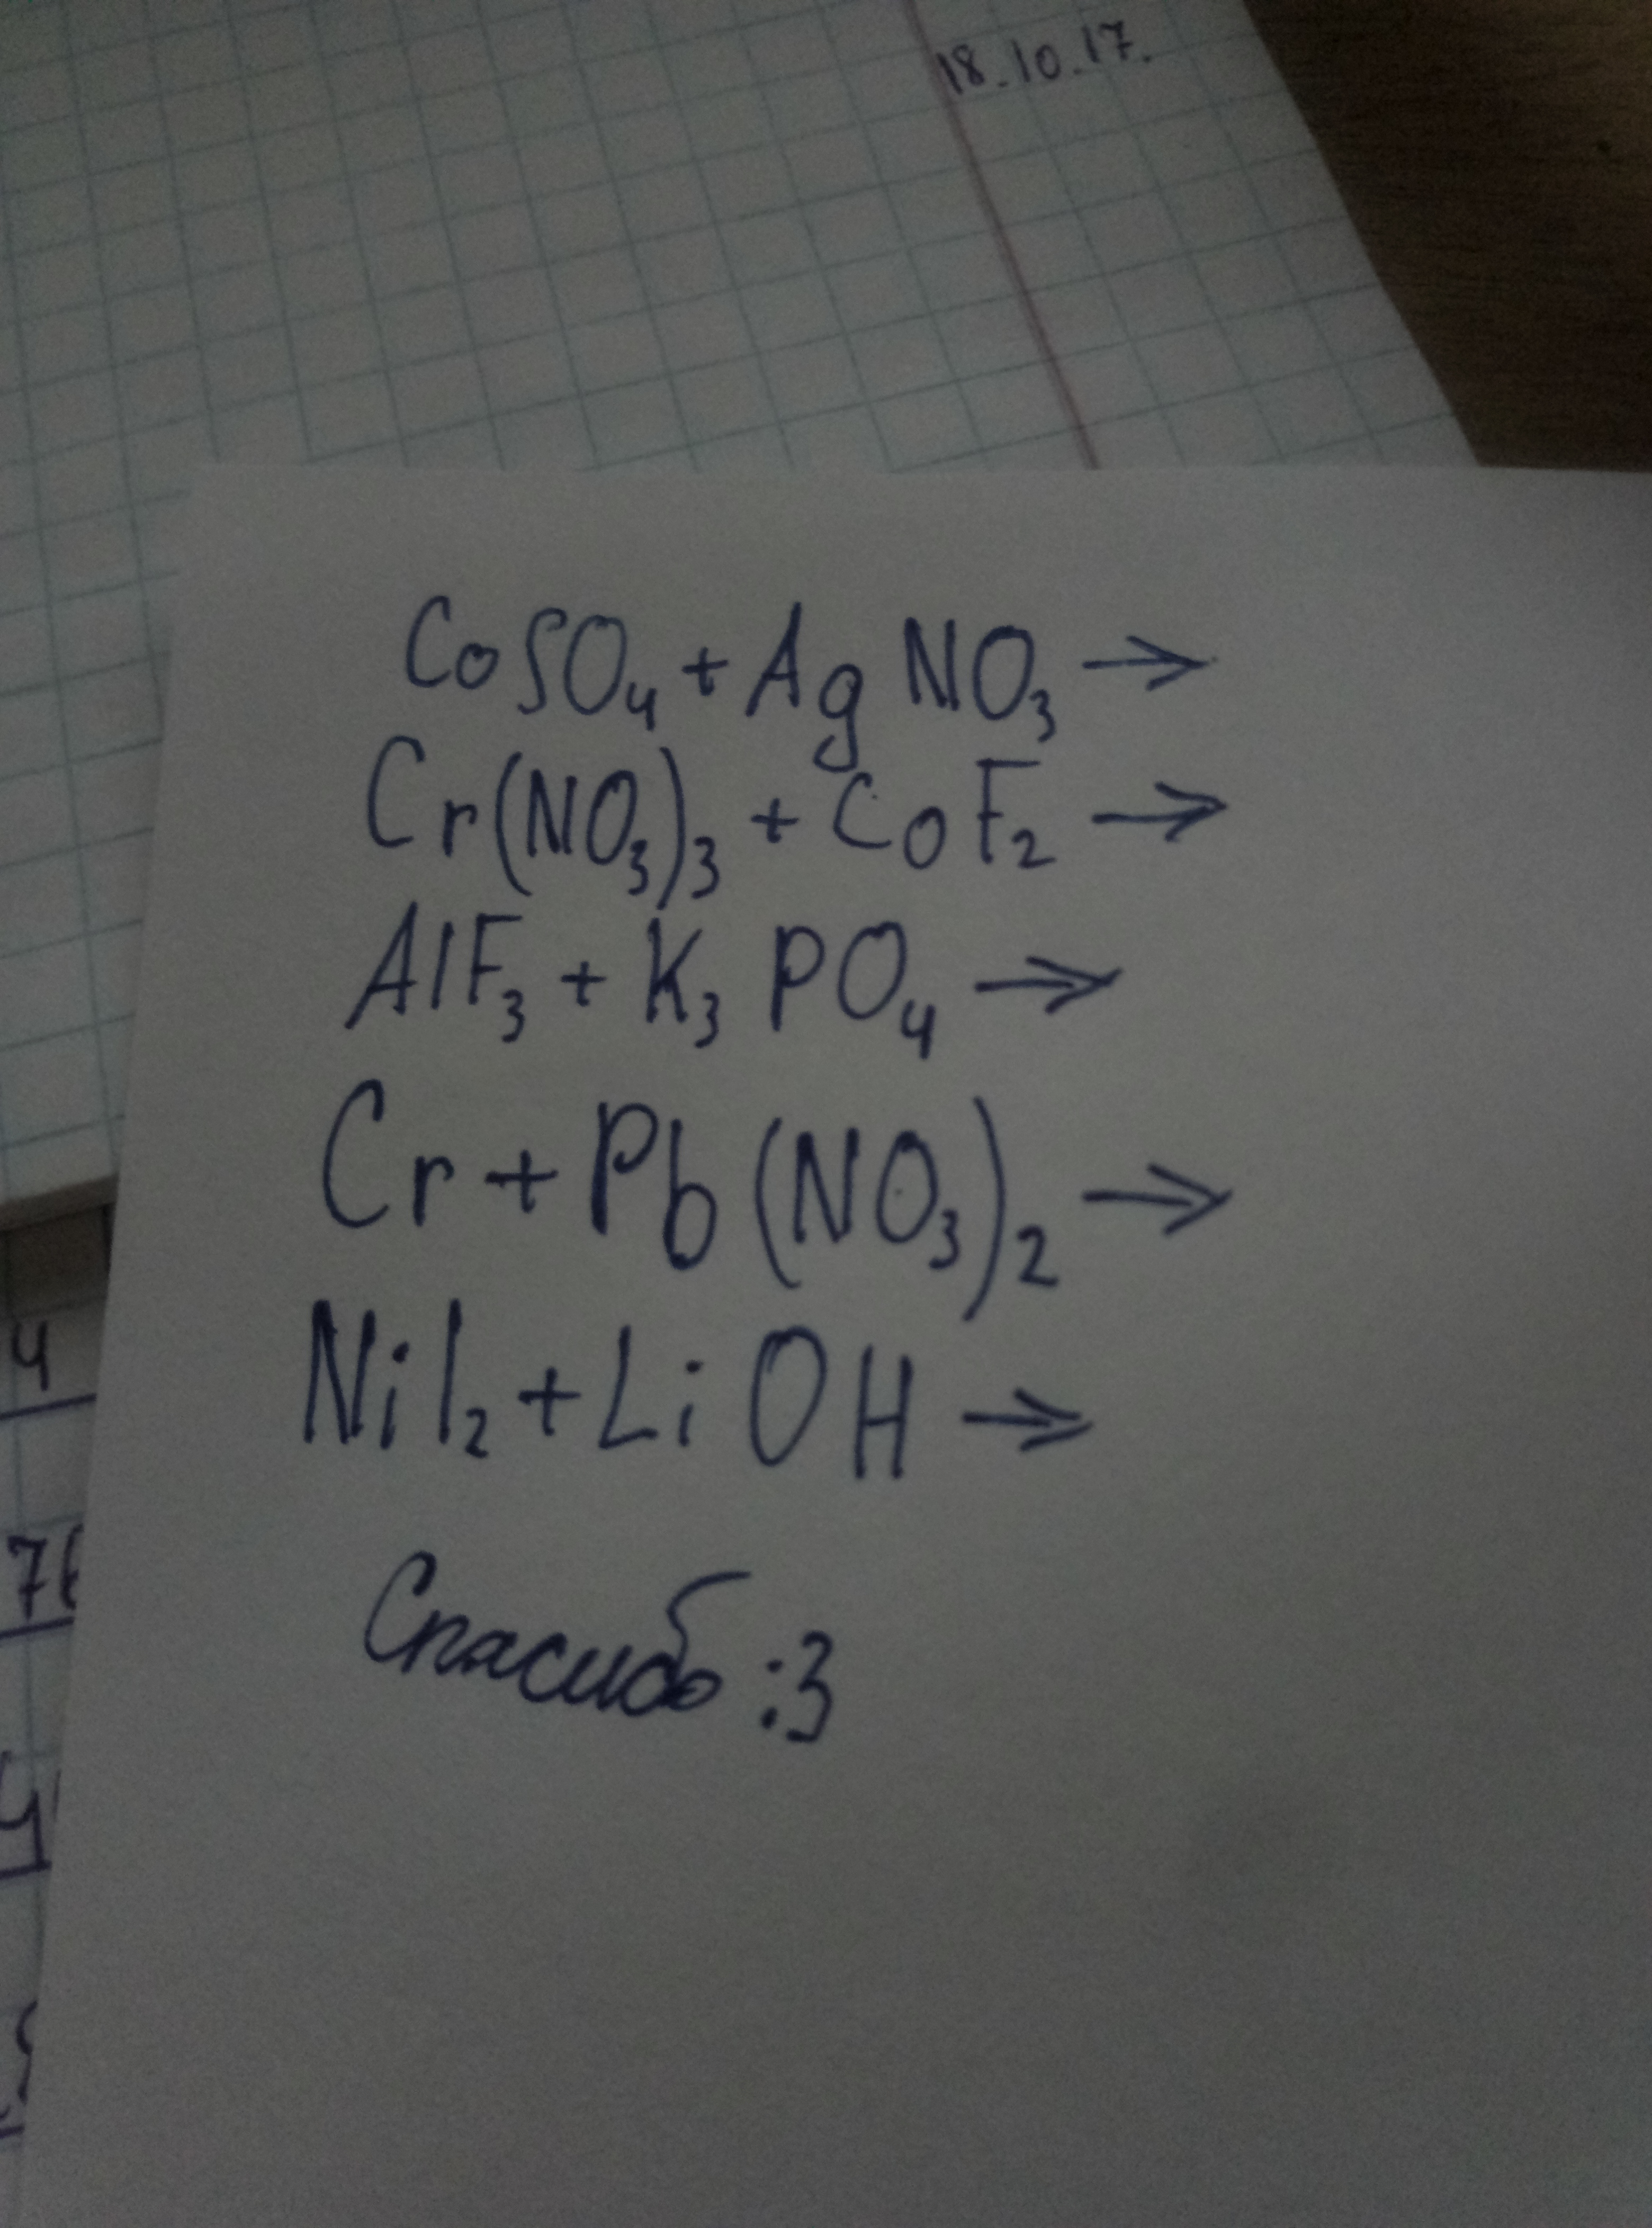 18.10.17.
CoSO₄ + AgNO₃ →
Cr(NO₃)₃ + CoF₂ →
AlF₃ + K₃PO₄ →
Cr + Pb(NO₃)₂ →
NiI₂ + LiOH →
4
Спасибо :3